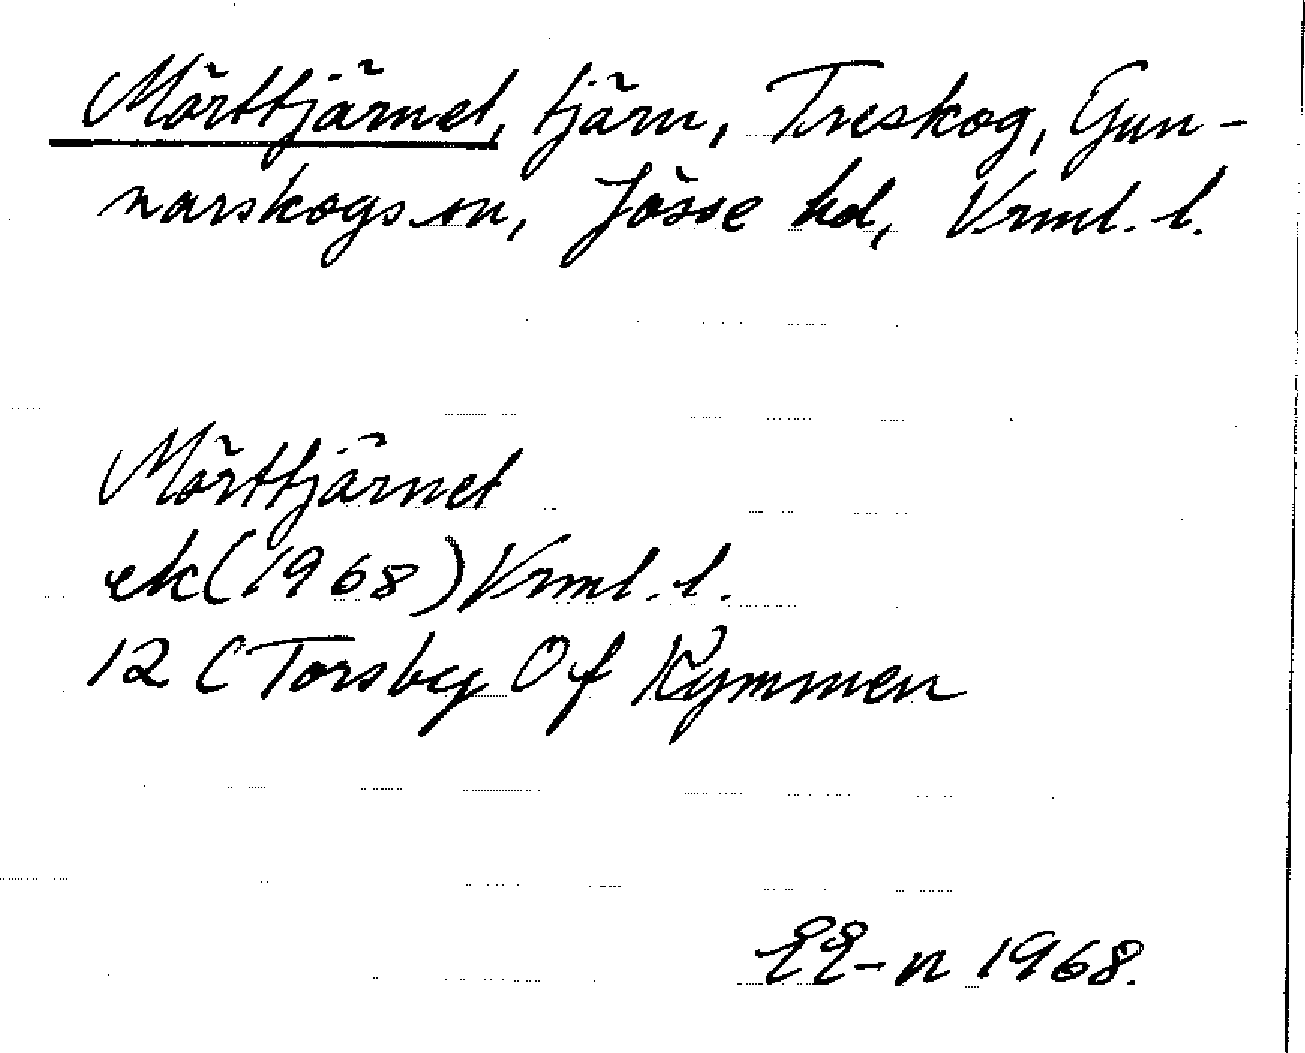 Mörttjärnet, tjärn, Treskog, Gun-
narskogs sn, Jösse hd, Vrml. l.
Mörttjärnet
ek (1968) Vrml. l.
12 C Torsby Of Kymmen
EE-n 1968.